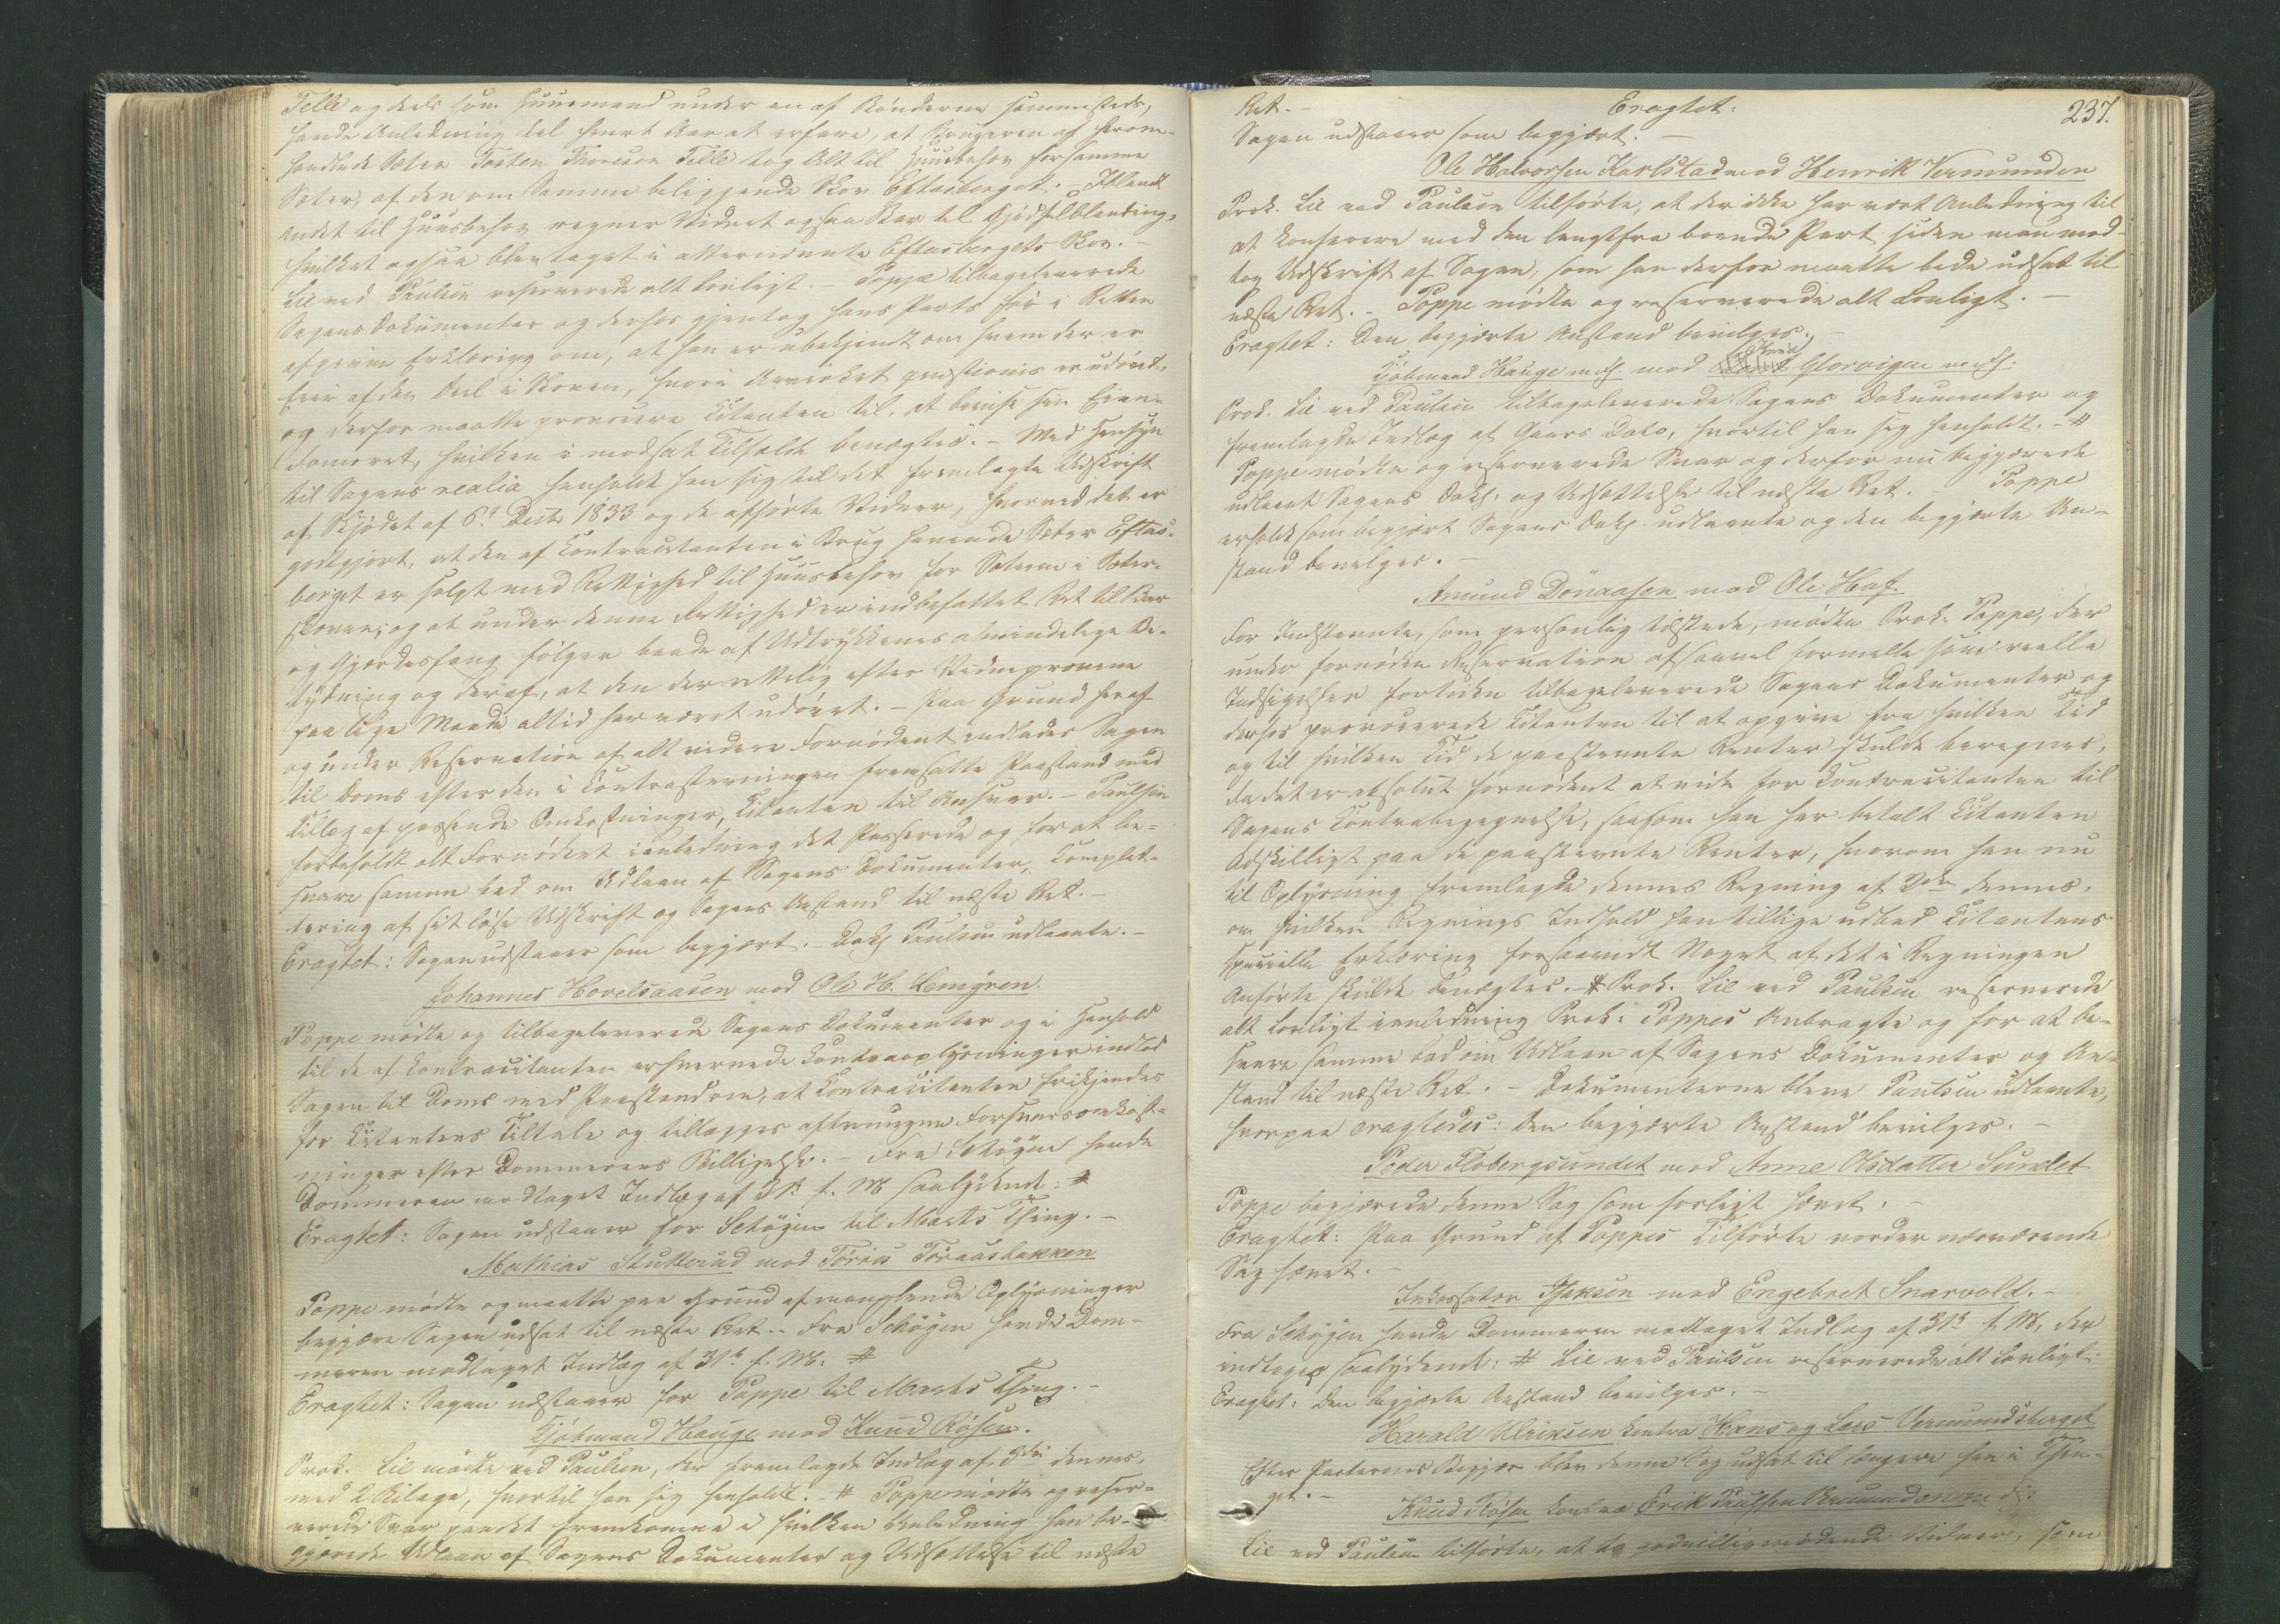 Telle og deels som Huusmand under en af Bønderne sammesteds,
havde Anledning til hvert Aar at erfare, at Brugeren af Grom-
handlede Sæter Torsten Thoreson Telle tog Alt til Huusbehov for samme
Sæter, af den om Samme beliggende Skov Eftasberget. Iblandt
andet til Huusbehov regner Vidnet ogsaa Bar til Gjødselblanding,
hvilket ogsaa blev taget i attermeldte Eftasbergets Skov. –
Lie ved Paulsen reserverede alt Lovligt. – Poppe tilbageleverede
Sagens Dokumenter og derhos gjentog hans Parts før i Retten
afgivne Erklæring om, at han er ubekjendt om hvem der er
Eier af den Deel i Skoven, hvori Avirket qvæstionis er udøvet,
og derfor maatte provocere Citanten til at bevise sin Eien-
domsret, hvilken i modsat Tilfælde benægtes. – Med Hensyn
til Sagens realia henholdt han sig til det fremlagte Udskrift
af Skjødet af 6te Decbr 1833 og de afhørte Vidner, hvorved det er
godtgjort, at den af Contracitanten i Brug havende Sæter Eftas-
berget er solgt med Rettighed til Huusbehov for Sæteren i Sæter-
skoven; og at under denne Rettighed er indbefattet Ret til Bar
og Gjærdesfang følger baade af Udtrykkenes almindelige Be-
tydning og deraf, at den der rettelig efter Vidneprovene
paa lige Maade altid har været udøvet. – Paa Grund heraf
og under Reservation af alt videre Fornødent indlades Sagen
til Doms efter den i Contrastevningen fremsatte Paastand med
Tillæg af passende Omkostninger, Citanten til Ansvar. – Paulsen
forbeholdt alt Fornødent i Anledning det Passerede og for at be-
svare samme bad om Udlaan af Sagens Dokumenter, Complet-
tering af sit løse Udskrift og Sagens Anstand til næste Ret. –
Eragtet: Sagen udstaaer som begjært. – Doks Paulsen udlaante. –
Johannes Hovelsaasen mod Ole H. Lemyren.
Poppe mødte og tilbageleverede Sagens Dokumenter og i Henhold
til de af Contracitanten erhvervede Contraoplysninger indlod
Sagen til Doms med Paastand om, at Contracitanten frikjendes
for Citantens Tiltale og tillægges aftvungne Forsvarsomkost-
ninger efter Dommerens Billigelse. – Fra Schøyen havde
Dommeren modtaget Indlæg af 31te f. M. saalydende: #
Eragtet: Sagen udstaaer for Schøyen til Marts Thing. –
Mathias Stutterud mod Tøris Toraasbakken
Poppe mødte og maatte paa Grund af manglende Oplysninger
begjære Sagen udsat til næste Ret. – Fra Schøyen havde Dom-
meren modtaget Indlæg af 31te f. M. #
Eragtet: Sagen udstaaer for Poppe til Marts Thing. –
Kjøbmand Hauge mod Knud Røsen.
Prok. Lie mødte ved Paulsen, der fremlagde Indlæg af 3die dennes,
med 2 Bilage, hvortil han sig henholdt. – # Poppe mødte og reser-
verede Svar paa det Fremkomne i hvilken Anledning han be-
gjærede Udlaan af Sagens Dokumenter og Udsættelse til næste
237.
Ret. – Eragtet:
Sagen udstaaer som begjært. –
Ole Halvorsen Karlstad mod Henrik Vermunden
Prok. Lie ved Paulsen tilførte, at der ikke har vært Anledning til
at konferere med den langtfra boende Part siden man mod-
tog Udskrift af Sagen, som han derfor maatte bede udsat til
næste Ret. – Poppe mødte og reserverede alt Lovligt. –
Eragtet: Den begjærte Anstand bevilges. –
Kjøbmand Hauge m. fl. mod Glorvigen m. fl.
Prok. Lie ved Paulsen tilbageleverede Sagens Dokumenter og
fremlagde Indlæg af Gaars Dato, hvortil han sig henholdt. – #
Poppe mødte og reserverede Svar og derfor nu begjærede
udlaant Sagens Doks. og Udsættelse til næste Ret. – Poppe
erholdt som begjært Sagens Doks. udlaante og den begjærte An-
stand bevilges. –
Amund Dønaasen mod Ole Haf.
For Indstevnte, som personlig tilstede, mødte Prok. Poppe, der
under fornøden Reservation af saavel formelle som reelle
Indsigelser fortiden tilbageleverede Sagens Dokumenter og
derhos provocerede Citanten til at opgive fra hvilken Tid
og til hvilken Tid de paastevnte Renter skulde beregnes,
da det er absolut fornødent at vide for Contracitanten til
Sagens Contrabegegnelse, saasom han har betalt Citanten
Adskilligt paa de paastevnte Renter, hvorom han nu
til Oplysning fremlagde dennes Regning af 2den dennes,
om hvilken Regnings Indhold han tillige udbad Citantens
specielle Erklæring forsaavidt Noget af det i Regningen
Anførte skulde benægtes. – # Prok. Lie ved Paulsen reserverede
alt Lovligt i Anledning Prok. Poppes Anbragte og for at be-
svare samme bad om Udlaan af Sagens Dokumenter og An-
stand til næste Ret. – Dokumenterne bleve Paulsen udlaante,
hvorpaa eragtedes: Den begjærte Anstand bevilges. –
Peder Flobergsundet mod Anne Olsdatter Sundet
Poppe begjærede denne Sag som forligt hævet. –
Eragtet: Paa Grund af Poppes Tilførte vorder nærværende
Sag hævet. –
Inkassator Isaksen mod Engebret Snarvold. –
Fra Schøyen havde Dommeren modtaget Indlæg af 31te f. M., der
indtages saalydende: # Lie ved Paulsen reserverede alt Lovligt.
Eragtet: Den begjærte Anstand bevilges. –
Harald Ulriksen contra Hans og Lars Vermundsberget
Efter Parternes Begjær blev denne Sag udsat til længere hen i Thin-
get. –
Knud Røsen contra Erik Paulsen
Lie ved Paulsen tilførte, at to godvilligmødende Vidner, som